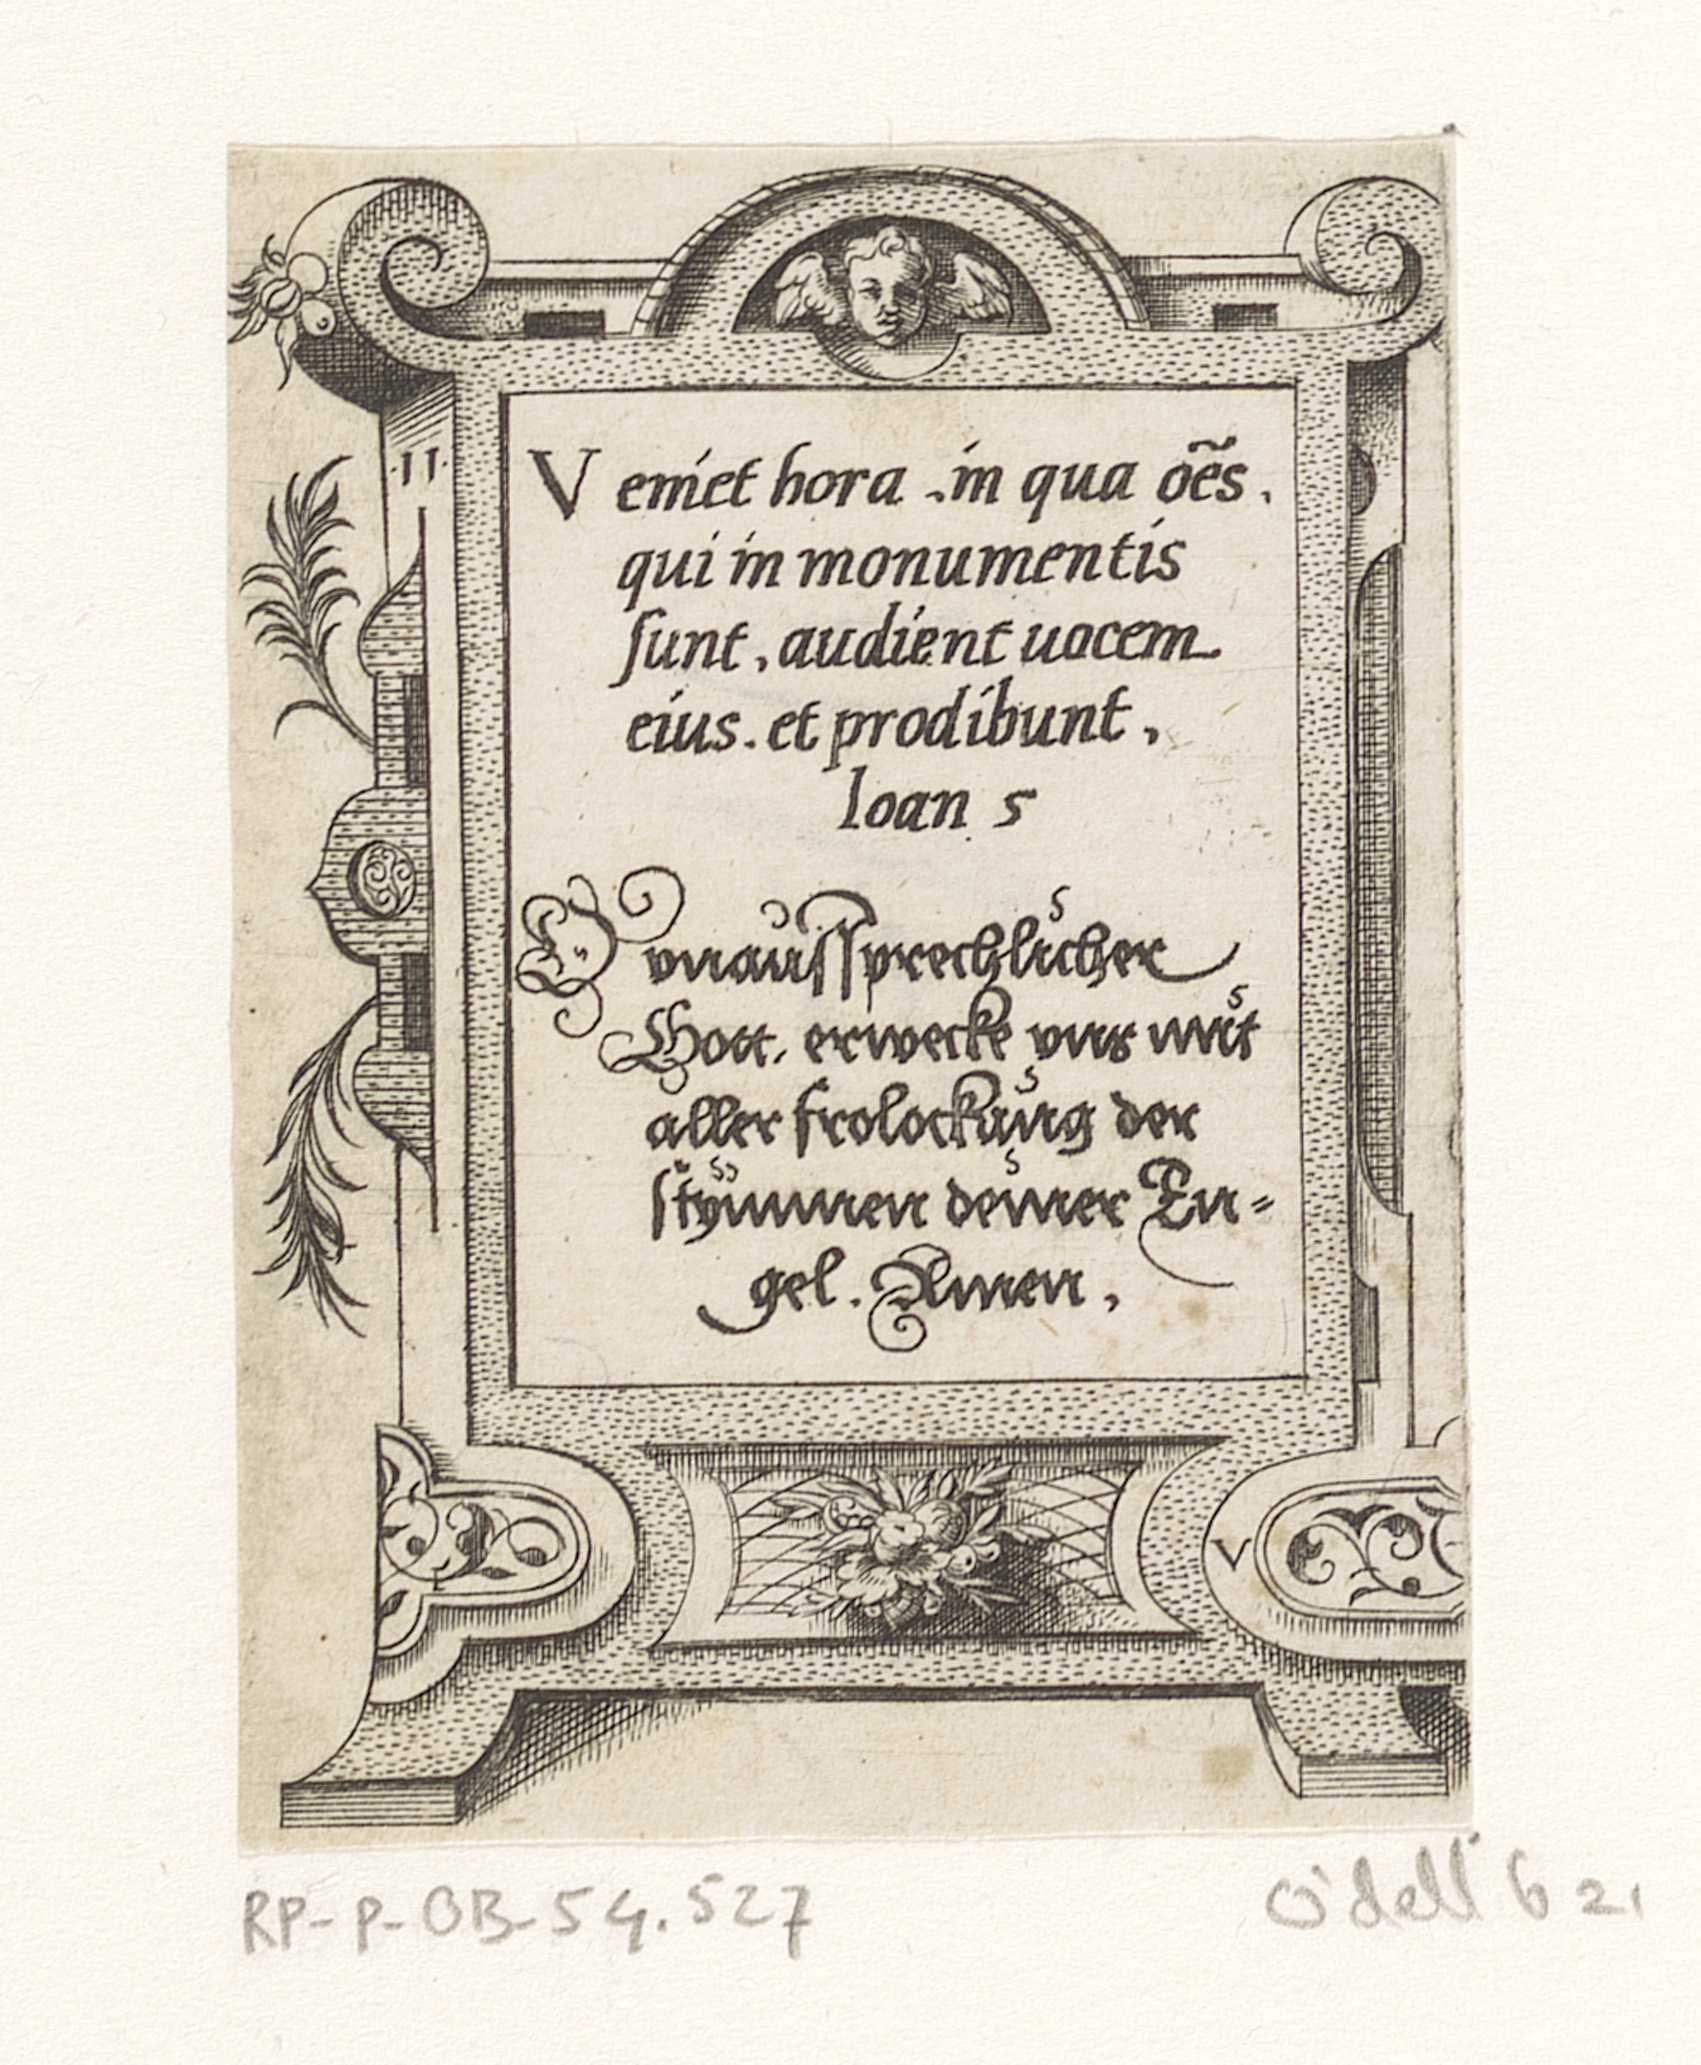 ·11·
Veniet hora . in qua oẽs .
qui in monumentis
ſunt , audient uocem
eius . et prodibunt ,
Ioan 5
O vnauſſprechlicher
Gott, erwecke vns mit
aller frolockung der
ſtÿmmen deiner En-
gel . Amen ,
V
RP-P-OB-54.527
O'dell b 21